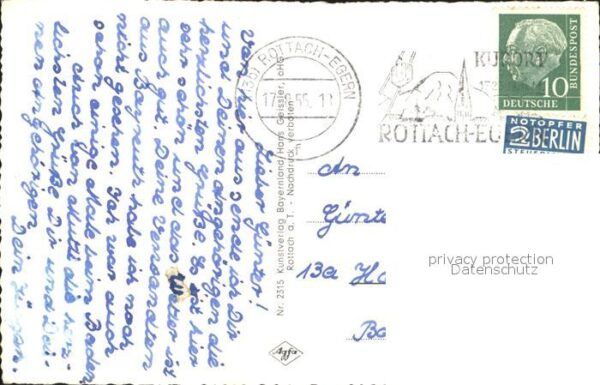 Lieber Günter!
Von hier aus sende ich Dir
und Deinen Angehörigen die
herzlichsten Grüße. Es ist hier
sehr schön und das Wetter ist
auch gut. Deine Verwandten
aus Bayreuth habe ich noch
nicht gesehen. Ich war auch
schon einige Male beim Baden.
Auch von Mutti die herz-
lichsten Grüße Dir und Dei-
nen Angehörigen.
Dein Jürgen.
Nr. 2315 Kunstverlag Bayernland/Hans Geissler, oHG
Rottach a. T. Nachdruck verboten
Agfa
(13b) ROTTACH-EGERN
17. 55. 11
h
KURORT
ROTTACH-EG
10
DEUTSCHE
BUNDESPOST
NOTOPFER
2 BERLIN
STEUERMARKE
An
Günte
13a Ho
Ba
privacy protection
Datenschutz